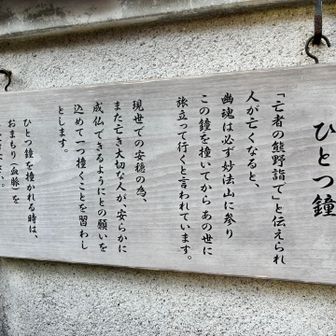 ひとつ鐘
「亡者の熊野詣で」と伝えられ
人が亡くなると、
幽魂は必ず妙法山に参り
この鐘を撞いてから あの世に
旅立って行くと言われています。
現世での安穏の為、
また亡き大切な人が、安らかに
成仏できるようにとの願いを
込めて一つ撞くことを習わし
とします。
ひとつ鐘を撞かれる時は、
おまもり「血脈」を